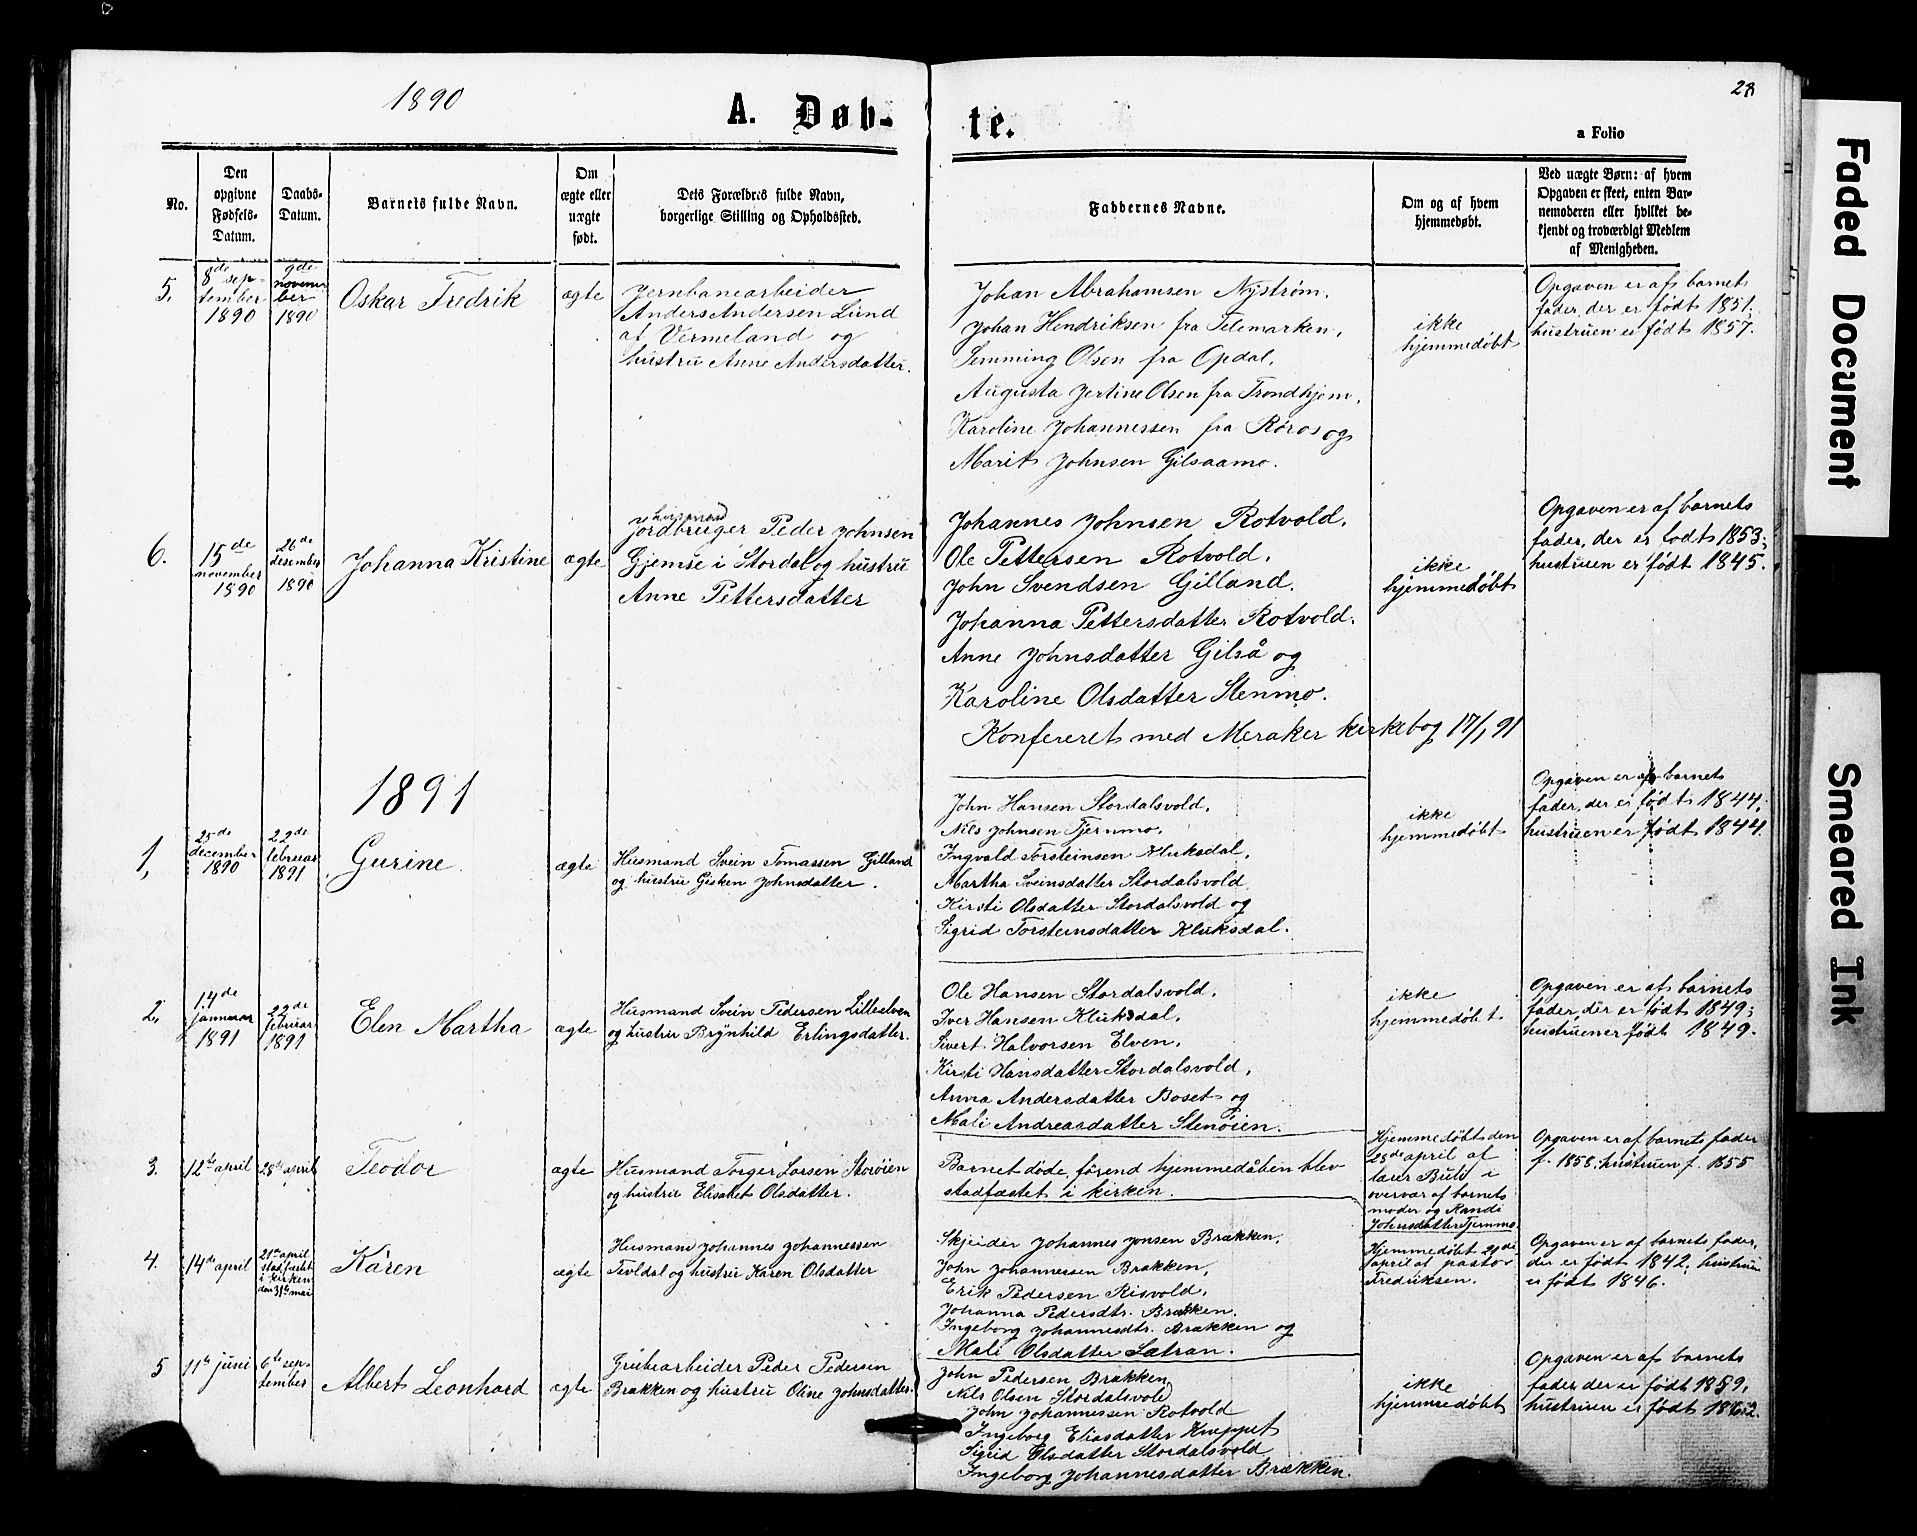 1890
A. Døb-
te.
28
a Folio
No.
Den
opgivne
Fødsels-
Datum.
Daabs-
Datum.
Barnets fulde Navn.
Om
ægte eller
uægte
født.
Dets Forældres fulde Navn,
borgerlige Stilling og Opholdssted.
Faddernes Navne.
Om og af hvem
hjemmedøbt.
Ved uægte Børn: af hvem
Opgaven er skeet, enten Bar-
nemoderen eller hvilket be-
kjendt og troværdigt Medlem
af Menigheden.
5.
8de sep-
tember
1890
9de
novem-
ber
1890
Oskar Fredrik
ægte
Jernbanearbeider
Anders Andersen Lund
af Vermeland og
hustru Anne Andersdatter.
Johan Abrahamsen Nyström.
Johan Hendriksen fra Telemarken,
Semming Olsen fra Opdal,
Augusta Jertine Olsen fra Trondhjem,
Karoline Johannessen fra Røros og
Marit Johnsen Gilsaamo.
ikke
hjemmedøbt
Opgaven er af barnets
fader, der er født 1851;
hustruen er født 1857.
6.
15de
november
1890
26de
desember
1890
Johanna Kristine
ægte
husmand
Jordbruger Peder Johnsen
Gjemse i Stordal og hustru
Anne Pettersdatter
Johannes Johnsen Rotvold.
Ole Pettersen Rotvold.
John Svendsen Gilland.
Johanna Pettersdatter Rotvold.
Anne Johnsdatter Gilså og
Karoline Olsdatter Stenmo.
Konfereret med Meraker kirkebog 17/1 91
ikke
hjemmedøbt
Opgaven er af barnets
fader, der er født 1853;
hustruen er født 1845.
1891
1,
25de
december
1890
22de
februar
1891
Gurine
ægte
Husmand Svein Tomassen Gilland
og hustru Gisken Johnsdatter.
John Hansen Stordalsvold,
Nils Johnsen Tjernmo,
Ingvald Torsteinsen Kluksdal,
Martha Sveinsdatter Stordalsvold,
Kirsti Olsdatter Stordalsvold og
Sigrid Torsteinsdatter Kluksdal.
ikke
hjemmedøbt
Opgaven er af barnets
fader, der er født 1844;
hustruen er født 1844.
2,
14de
januar
1891
22de
februar
1891
Elen Martha
ægte
Husmand Svein Pedersen Lilleelven
og hustru Brynhild Erlingsdatter.
Ole Hansen Stordalsvold,
Iver Hansen Kluksdal,
Sivert Halvorsen Elven,
Kirsti Hansdatter Stordalsvold,
Anna Andersdatter Boset og
Mali Andreasdatter Stenøien.
ikke
hjemmedøbt
Opgaven er af barnets
fader, der er født 1849;
hustruen er født 1849.
3.
12te april
28de april
Teodor
ægte
Husmand Torger Larsen Storøien
og hustru Elisabet Olsdatter.
Barnet døde, førend hjemmedåben blev
stadfæstet i kirken.
Hjemmedøbt den
28de april af
lærer Buld i
overvær af barnets
moder og Randi
Johnsdatter Tjernmo.
Opgaven er af barnets fader
f. 1858; hustruen f. 1855
4.
14de april
21de april
stadfæstet
i kirken
den 31te mai
Karen
ægte
Husmand Johannes Johannessen
Tevldal og hustru Karen Olsdatter
Skjeider Johannes Jonsen Brækken,
John Johannessen Brækken,
Erik Pedersen Risvold,
Johanna Pedersdtr. Brækken,
Ingeborg Johannesdtr. Brækken og
Mali Olsdatter Lætran.
Hjemmedøbt 21de
april af pastor
Fredriksen.
Opgaven er af barnets fader,
der er født 1842; hustruen
er født 1846.
5
11te juni
6te sep-
tember
Albert Leonhard
ægte
Grubearbeider Peder Pedersen
Brækken og hustru Oline Johnsdatter.
John Pedersen Brækken
Nils Olsen Stordalsvold
John Johannessen Rotvold
Ingeborg Eliasdatter Knoppet
Sigrid Olsdatter Stordalsvold
Ingeborg Johannesdatter Brækken.
ikke
hjemmedøbt
Opgaven er af barnets
fader, der er født 1859,
hustruen er født
Faded Document
Smeared Ink